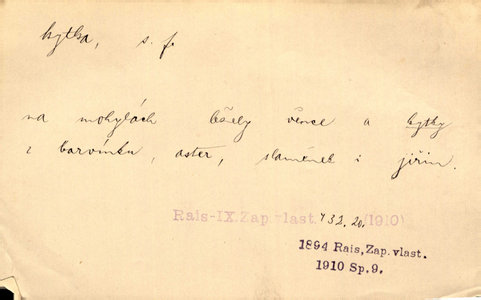 kytka, s. f.
na mohylách ležely věnce a kytky
z barvínku, aster, slaměnek i jiřin.
Rais-IX. Zap. vlast. 432. 20. (1910)
1894 Rais, Zap. vlast.
1910 Sp. 9.